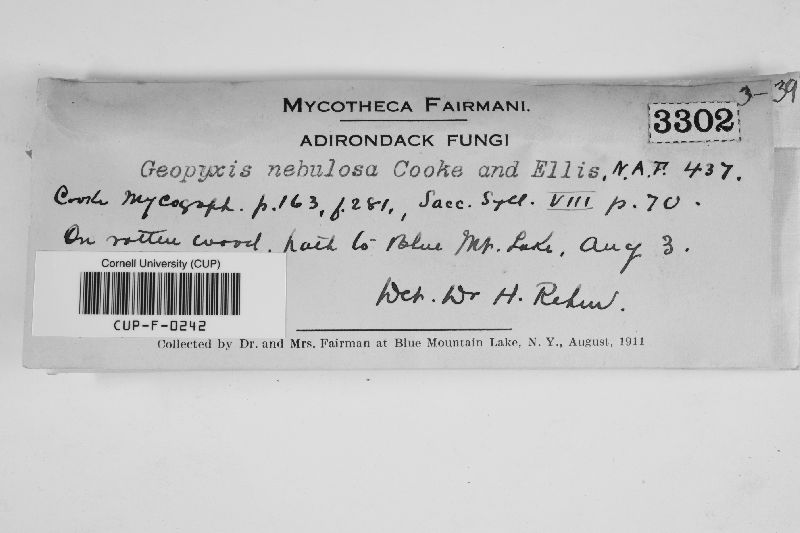 3-39
MYCOTHECA FAIRMANI.
3302
ADIRONDACK FUNGI
Geopyxis nebulosa Cooke and Ellis, N.A.F. 437.
Cooke Mycograph. p.163, f.281, Sacc. Syll. VIII p.70.
On rotten wood. path to Blue Mt. Lake, Aug 3.
Det. Dr H. Rehm.
Cornell University (CUP)
CUP-F-0242
Collected by Dr. and Mrs. Fairman at Blue Mountain Lake, N. Y., August, 1911